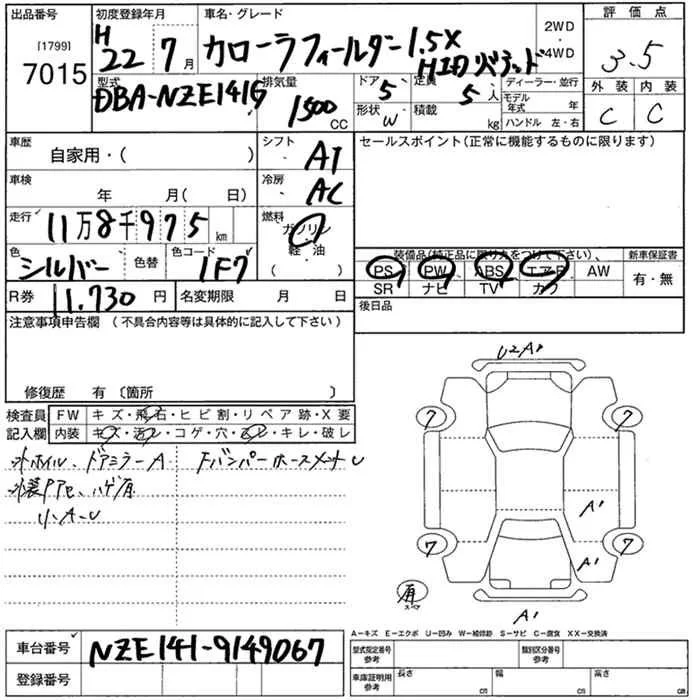 出品番号 初度登録年月 車名・グレード 2WD 評価点
[1799] H 22 7月 カローラフィールダー1.5X 4WD 3.5
7015 HID
型式 排気量 ドア 5 定員 5 人 ディーラー・並行 外装 内装
DBA-NZE141G 1500 CC 形状 W 積載 kg モデル年式 年 C C
ハンドル 左・右
車歴 シフト セールスポイント(正常に機能するものに限ります)
自家用・( ) AT
車検 冷房
年 月( 日) AC
走行 11万8千975 km 燃料
ガソリン
軽・油
( )
色 シルバー 色替 色コード 1F7
装備品(純正品に限り丸をつけて下さい)、 新車保証書
PS PW ABS エアB AW 有・無
SR ナビ TV カワ
R券 11.730 円 名変期限 月 日 後日品
注意事項申告欄 (不具合内容等は具体的に記入して下さい)
修復歴 有 〔箇所 〕
検査員 FW キズ・飛石・ヒビ割・リペア跡・X要
記入欄 内装 キズ・汚レ・コゲ・穴・凹レ・キレ・破レ
外ホイル、ドアミラーA Fバンパーホースメント U
小A-U
U2A1
7 7
A1
7 7
A1
原
スペア
A1
A-キズ E-エクボ U-凹み W-補修跡 S-サビ C-腐食 XX-交換済
車台番号 NZE141-9149067
型式指定番号 参考 類別区分番号 参考
登録番号
車庫証明用 参考 長さ cm 幅 cm 高さ cm